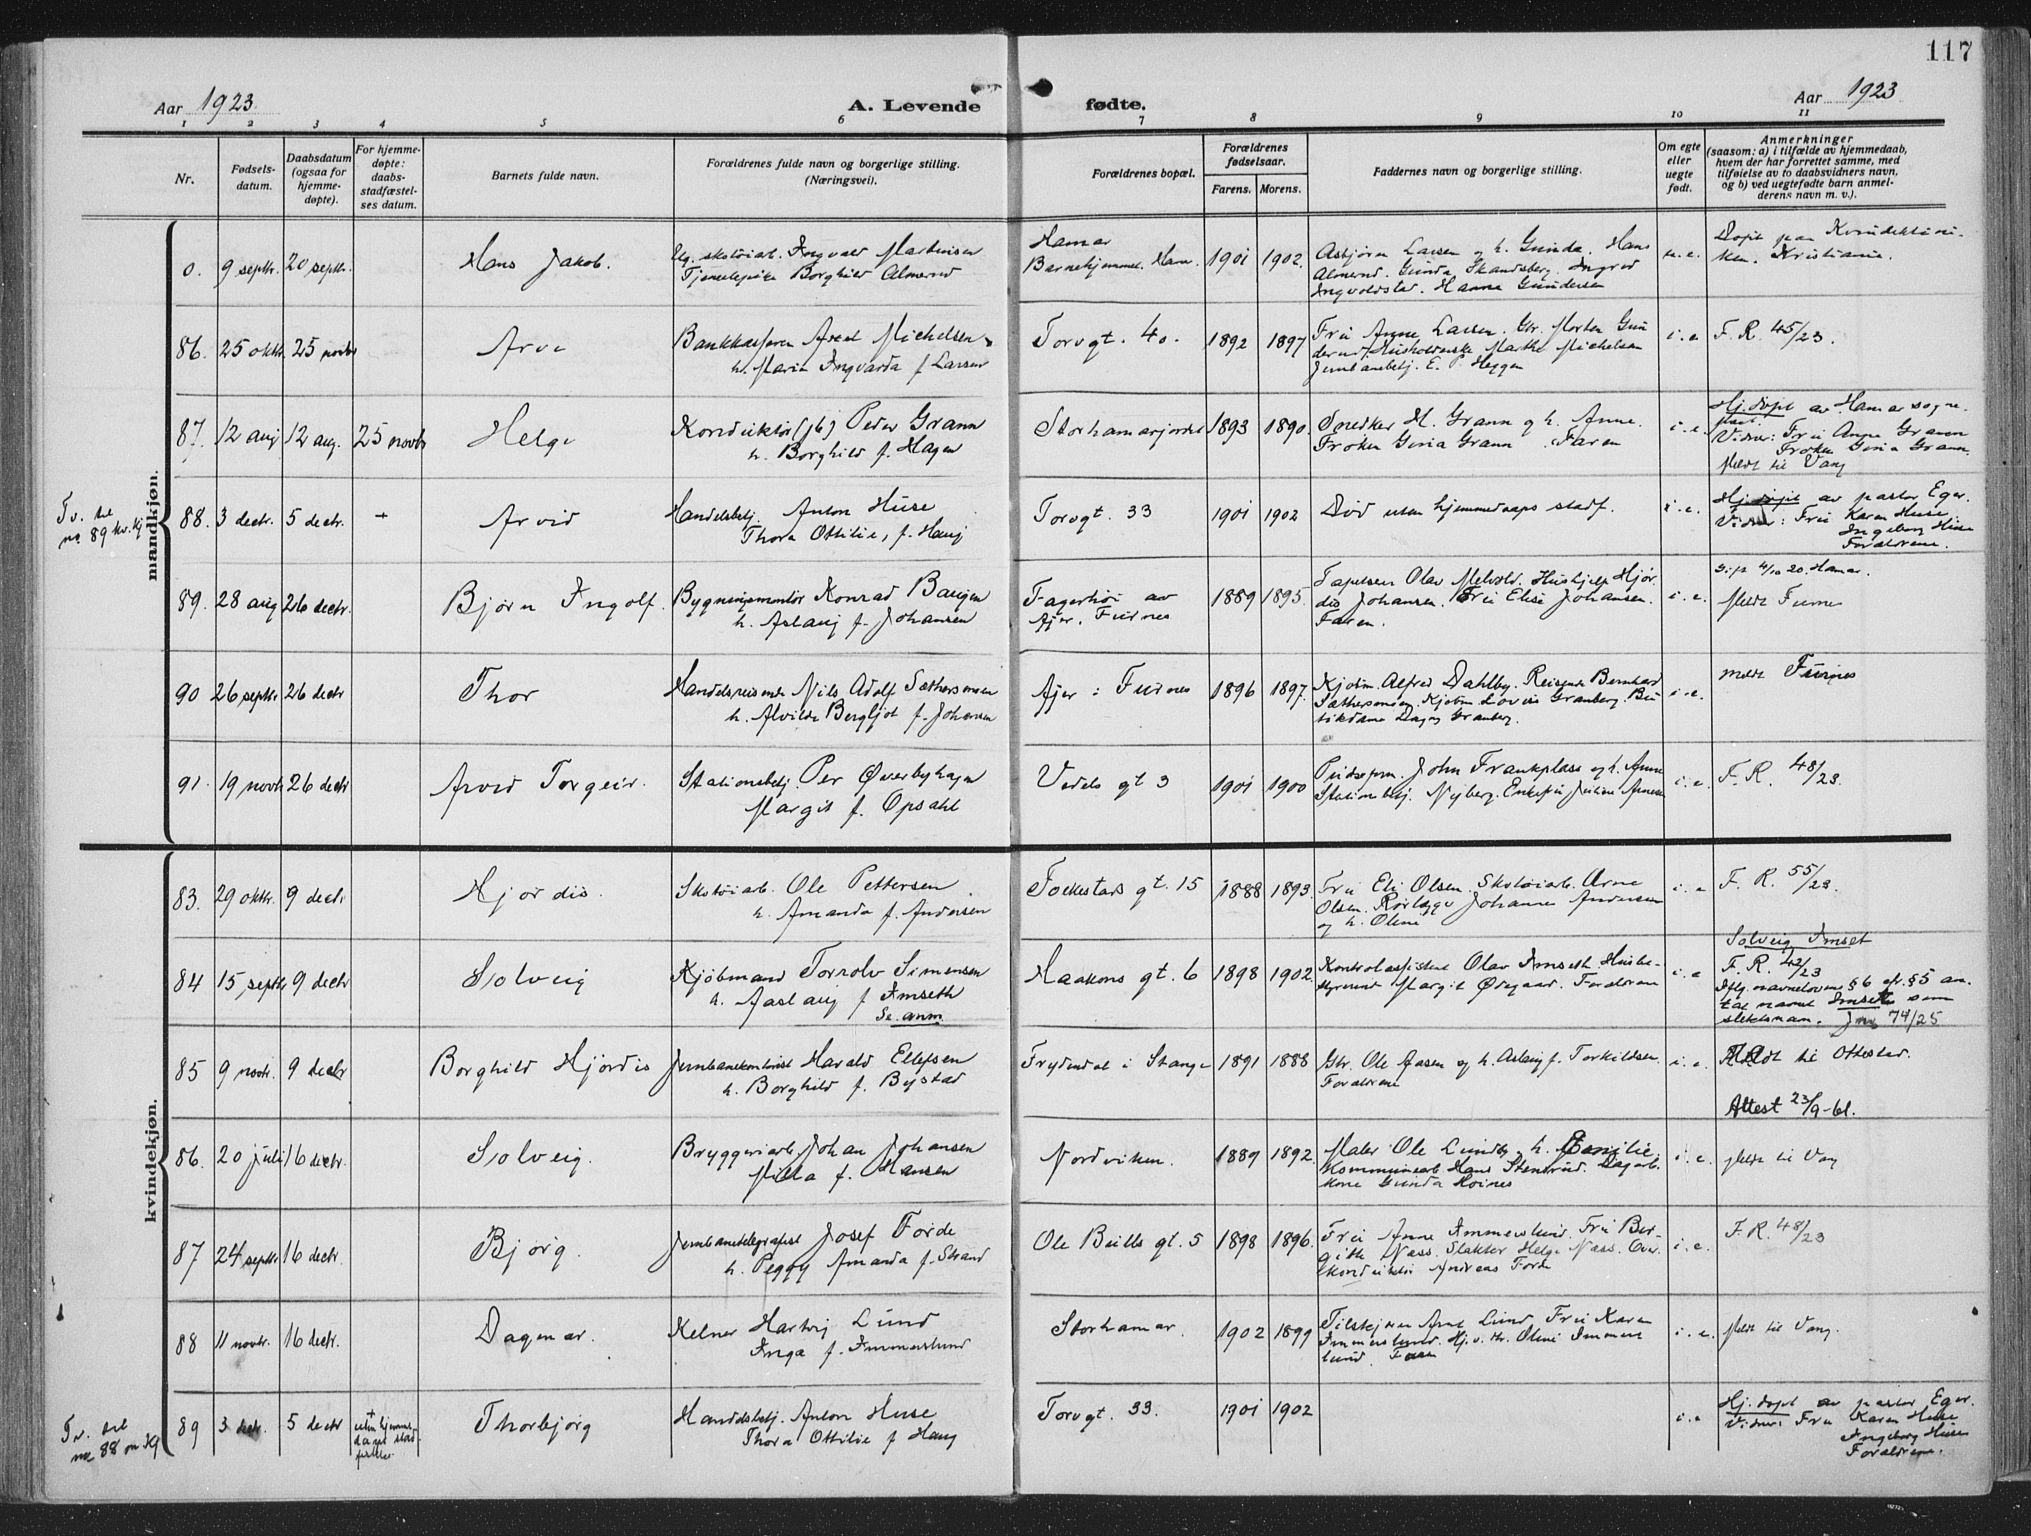 117
Aar 1923.
A. Levende
fødte.
Aar 1923
1 2 3 4 5 6 7 8 9 10 11
Nr.
Fødsels-
datum.
Daabsdatum
(ogsaa for
hjemme-
døpte).
For hjemme-
døpte:
daabs-
stadfæstel-
ses datum.
Barnets fulde navn.
Forældrenes fulde navn og borgerlige stilling.
(Næringsvei).
Forældrenes bopæl.
Forældrenes
fødselsaar.
Farens. Morens.
Faddernes navn og borgerlige stilling.
Om egte
eller
uegte
født.
Anmerkninger
(saasom: a) i tilfælde av hjemmedaab,
hvem der har forrettet samme, med
tilføielse av to daabsvidners navn,
og b) ved uegtefødte barn anmel-
derens navn m. v.).
mandkjøn.
0. 9 septr. 20 septr. Hans Jakob.
Ug. skotøiarb. Ingvald Martinsen
Tjenestepike Borghild Almerud
Hamar
Barnehjemmet. Ham.
1901 1902.
Asbjørn Larsen og h. Gunda. Hans
Almerud. Gunda Skandsberg. Ingrid
Ingvoldstad. Hanna Gundersen
u. e.
Døpt paa Kvindeklini-
ken. Kristiania.
86. 25 oktr. 25 novbr Arve
Bankkasserer Axel Michelsen
h. Maria Ingvarda f. Larsen
Torvgt. 40.
1892 1897
Fru Anne Larsen. Gbr. Morten Gun
derud. Husholderske Marthe Michelsen
Jernbanebetj. E. P. Heggen
i. e F. R. 45/23.
87. 12 aug 12 aug. 25 novbr Helge
Konduktør (jb) Peder Grann
h. Borghild f. Hagen
Storhamarjordet
1893 1890.
Snedker H. Grann og h. Anne.
Frøken Gina Grann. Faren
i. e.
Hj. døpt av Hamar sogne-
prest.
Vidner: Fru Anne Grann
Frøken Gina Grann.
Meldt til Vang
Tv. til
no 89 kv. kj
88. 3 decbr. 5 decbr. + Arvid
Handelsbetj. Anton Huse
Thora Ottilie, f. Haug
Torvgt. 33
1901 1902
Død uten hjemmedaaps stadf.
i. e.
Hj. døpt av pastor Eger.
Vidner: Fru Karen Huse
Ingeborg Huse
Forældrene.
89. 28 aug 26 decbr. Bjørn Ingolf.
Bygningsmontør Konrad Baugen
h. Aslaug f. Johansen
Fagerhøi av
Ajer. Furnes
1889 1895.
Tapetserer Olav Melvold. Hushjelp Hjør-
dis Johansen. Fru Elise Johansen.
Faren.
i. e.
Vigt 4/10 20. Hamar.
Meldt Furnes
90 26 septr 26 decbr Thor
Handelsreisende Nils Adolf Sæthersmoen
h. Alvilde Bergljot f. Johansen
Ajer i Furnes
1896 1897.
Kjøbm. Alfred Dahlby. Reisende Bernhard
Sæthersmoen. Kjøbm. Lovis Granberg. Bu
tikdame Dagny Granberg.
i. e.
meldt Furnes
91. 19 novbr 26 decbr Arvid Torgeir.
Stationsbetj. Per Øverbyhagen
Margit f. Opsahl
Vedels gt 3
1901 1900
Pudseform. John Frankplass og h. Anna
Stationsbetj. Nyberg. Enkefru Juliane Arnesen
i. e. F. R. 48/23.
kvindekjøn.
83. 29 oktr. 9 decbr Hjordis.
Skotøiarb. Ole Pettersen
h. Amanda f. Andersen
Torkestads gt. 15
1888 1893.
Fru Eli Olsen. Skotøiarb. Arne
Olsen. Rørlægger Johannes Andersen
og h. Oline
i. e F. R. 55/23.
84 15 septbr 9 decbr Solveig
Kjøbmand Torrolv Simensen
h. Aaslaug f. Imseth
Se anm.
Haakons gt. 6
1898 1902.
Kontrolassistent Olav Imseth. Husbe-
styrerinde Margit Ødegaard. Forældrene
i. e
Solveig Imset
F. R. 42/23
Iflg. navneloven §6 cfr. §5 an-
tat navnet Imset som
slektsnavn. Jnr 74/25
85 9 novbr. 9 decbr Borghild Hjørdis
Jernbanekontorist Harald Ellefsen
h. Borghild f. Bystad
Frydendal i Stange
1891 1888
Gbr. Ole Aasen og h. Aslaug f. Torkildsen.
Forældrene
i. e.
Meldt til Ottestad.
Attest 23/9-61.
86. 20 juli 16 decbr. Solveig.
Bryggeriarb. Johan Johansen
Milla f. Hansen
Nordviken.
1889 1892.
Maler Ole Lundby h. Emilie.
Kommunearb. Hans Stenerud. Dagarb.
kone Gunda Hoines
i. e. Meldt til Vang
87 24 septbr 16 decbr Bjørg.
Jernbanetelegrafist Josef Forde
h. Peggy Amanda f. Strand
Ole Bulls gt. 5
1898 1896.
Fru Anne Immerslund. Fru Bir-
gitte Næss. Slakter Helge Næss. Over-
konduktør Andreas Forde
i. e. F. R. 48/23
88 11 novbr. 16 decbr. Dagmar.
Kelner Hartvig Lund
Inga f. Immerslund
Storhamar.
1902 1899
Tilskjærer Arne Lund Fru Karen
Immerslund. Hj. v. br. Oline Immers
lund. Faren
i. e. Meldt til Vang.
Tv. til
no 88 m kj
89 3 decbr. 5 decbr
+
uten hjemme
daaps stad-
festelse
Thorbjørg
Handelsbetj. Anton Huse
Thora Ottilie f. Haug
Torvgt. 33.
1901 1902
i. e
Hj. døpt av pastor Eger.
Vidner: Fru Karen Huse
Ingeborg Huse
Forældrene.